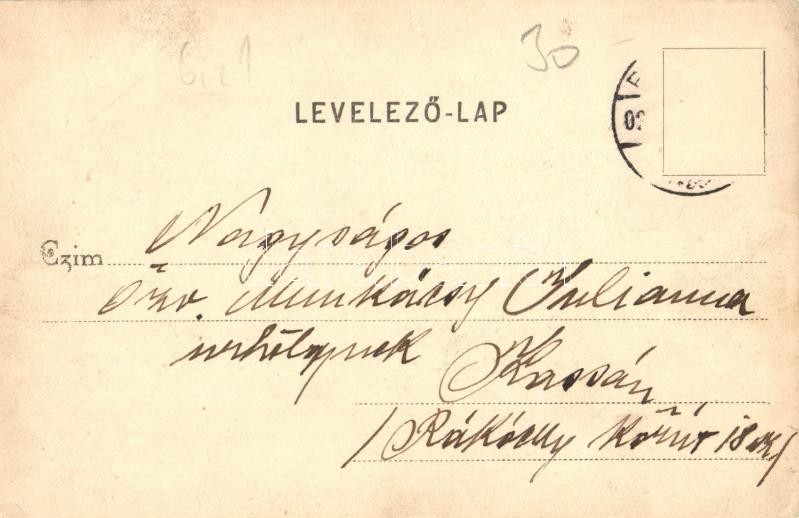 30
LEVELEZŐ-LAP
Czim Nagyságos
özv. Munkácsy Julianna
úrhölgynek
Kassán
/ Rákóczy körút 18 sz /